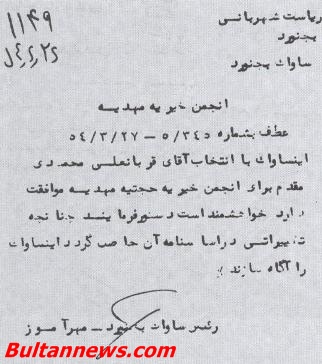 ریاست شهربانی
بجنورد
ساواك بجنورد
۱۱۴۹
انجمن خیریه مهدیه
عطف بشماره ۵/۳۴۵ – ۵۴/۳/۲۷
اینساواك با انتخاب آقای قربانعلی محمدی
مقدم برای انجمن خیریه حجتیه مهدیه موافقت
دارد خواهشمند است دستور فرمایند چنانچه
تغییراتی در اساسنامه آن حاصل گردد اینساواك
را آگاه سازند
رئیس ساواك بجنورد – مهرآموز
Bultannews.com